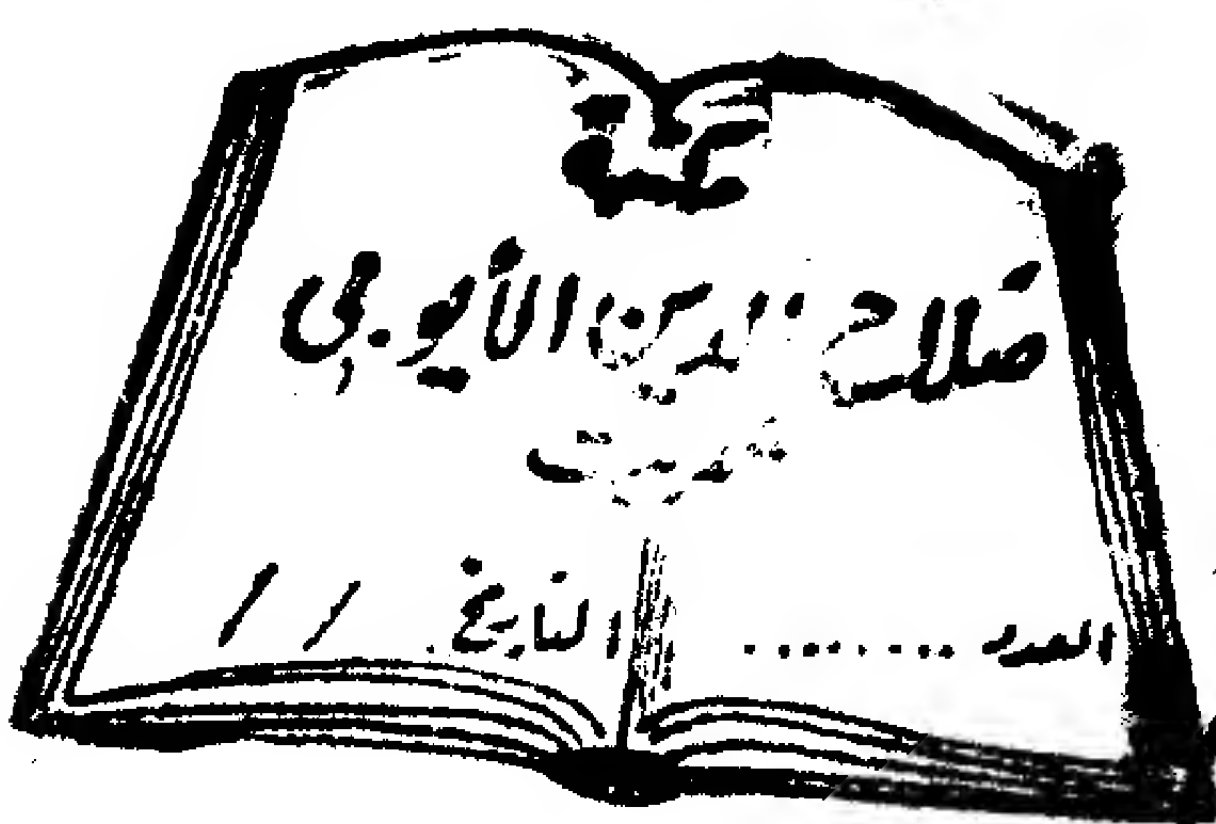 مكتبة
صلاح الدين الأيوبي
العدد ........ التاريخ / /